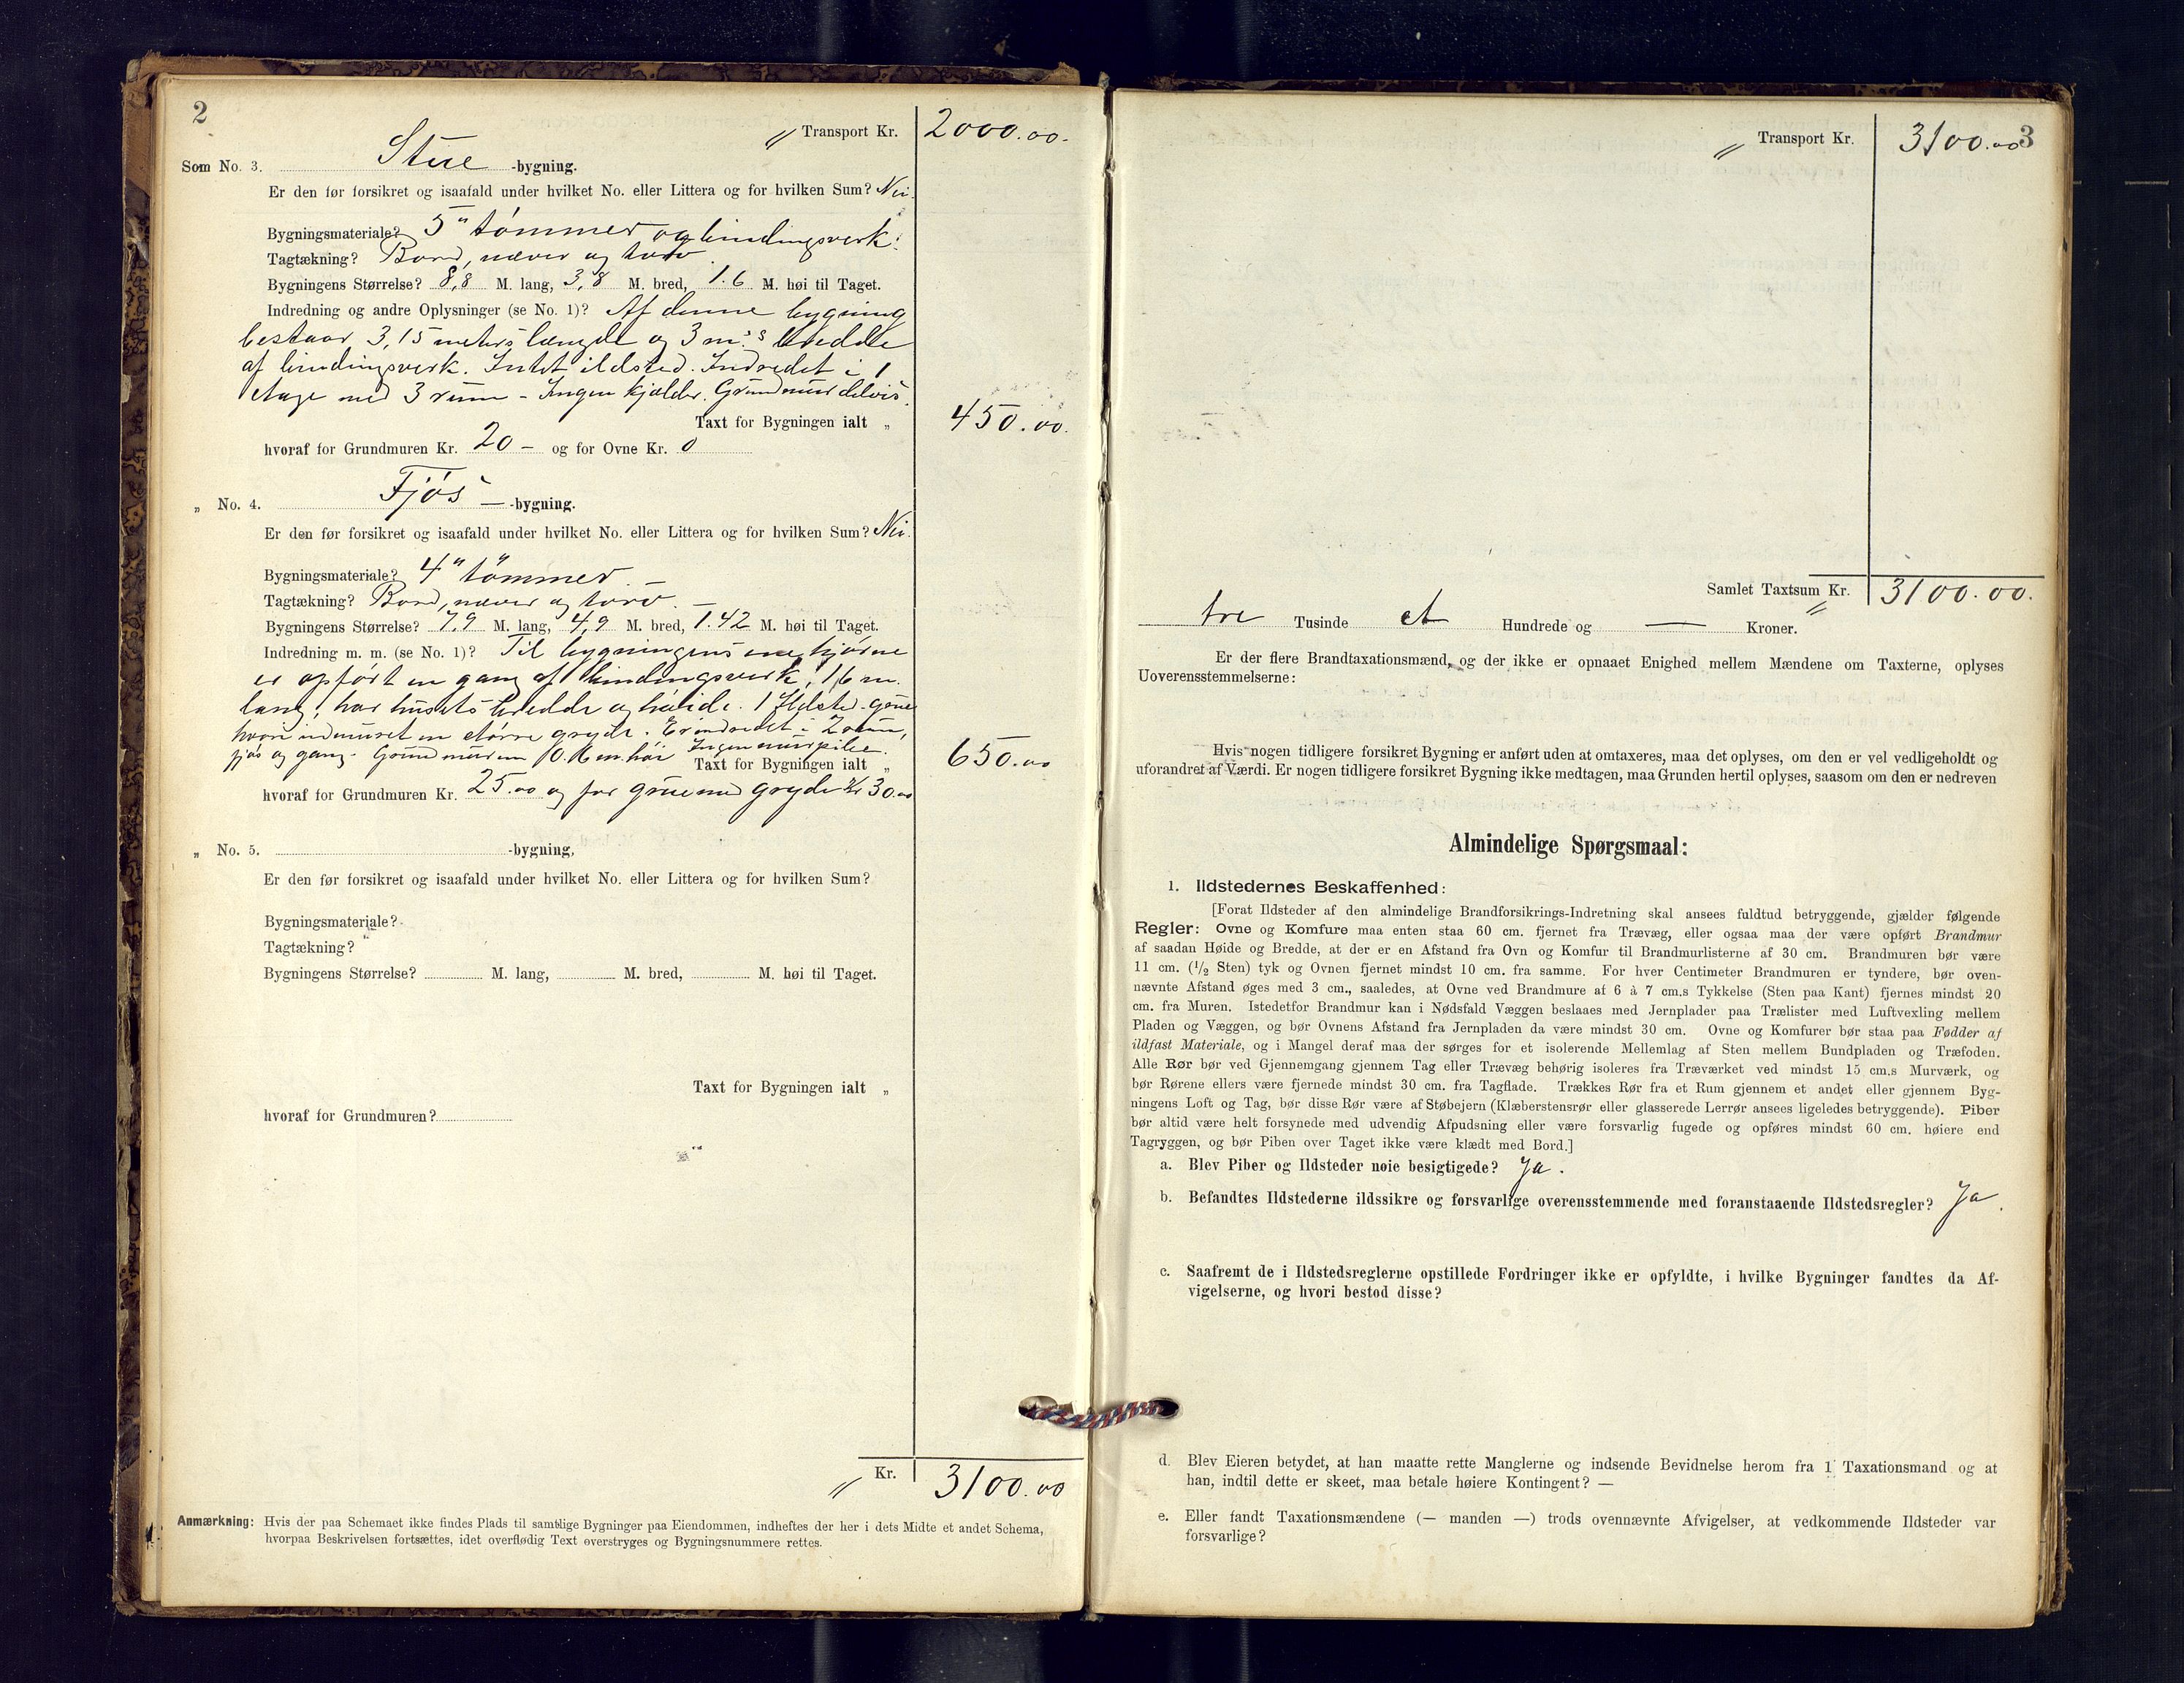 2
Transport Kr. 2000.00.
Som No. 3. Stue -bygning.
Er den før forsikret og isaafald under hvilket No. eller Littera og for hvilken Sum? Nei.
Bygningsmateriale? 5" tømmer og bindingsverk.
Tagtækning? Bord, næver og torv.
Bygningens Størrelse? 8,8 M. lang, 3,8 M. bred, 1.6 M. høi til Taget.
Indredning og andre Oplysninger (se No. 1)? Af denne bygning
bestaar 3,15 meters længde og 3 m:s bredde
af bindingsverk. Intet ildsted. Indredet i 1
etage med 3 rum - Ingen kjelder. Grundmur delvis.
Taxt for Bygningen ialt „ 450.00.
hvoraf for Grundmuren Kr. 20 - og for Ovne Kr. 0
„ No. 4. Fjøs -bygning.
Er den før forsikret og isaafald under hvilket No. eller Littera og for hvilken Sum? Nei.
Bygningsmateriale? 4" tømmer.
Tagtækning? Bord, næver og torv.
Bygningens Størrelse? 7,9 M. lang, 4,9 M. bred, 1.42 M. høi til Taget.
Indredning m. m. (se No. 1)? Til bygningens ene hjørne
er opført en gang af bindingsverk, 1,6 m.
lang, har husets bredde og høide. 1 Ildsted-grue
hvori indmuret en større gryde. Er indredet i 2 rum,
fjøs og gang. Grundmuren 0.6 m. høi Ingen murpibe.
Taxt for Bygningen ialt „ 650.00
hvoraf for Grundmuren Kr. 25.00 og for grue med gryde kr 30.00
„ No. 5. -bygning,
Er den før forsikret og isaafald under hvilket No. eller Littera og for hvilken Sum?
Bygningsmateriale?
Tagtækning?
Bygningens Størrelse? M. lang, M. bred, M. høi til Taget.
Taxt for Bygningen ialt „
hvoraf for Grundmuren?
Kr. 3100.00
Anmærkning: Hvis der paa Schemaet ikke findes Plads til samtlige Bygninger paa Eiendommen, indheftes der her i dets Midte et andet Schema,
hvorpaa Beskrivelsen fortsættes, idet overflødig Text overstryges og Bygningsnummere rettes.
3
Transport Kr. 3100.00
Samlet Taxtsum Kr. 3100.00.
tre Tusinde et Hundrede og — Kroner.
Er der flere Brandtaxationsmænd, og der ikke er opnaaet Enighed mellem Mændene om Taxterne, oplyses
Uoverensstemmelserne:
Hvis nogen tidligere forsikret Bygning er anført uden at omtaxeres, maa det oplyses, om den er vel vedligeholdt og
uforandret af Værdi. Er nogen tidligere forsikret Bygning ikke medtagen, maa Grunden hertil oplyses, saasom om den er nedreven
Almindelige Spørgsmaal:
1. Ildstedernes Beskaffenhed:
[Forat Ildsteder af den almindelige Brandforsikrings-Indretning skal ansees fuldtud betryggende, gjælder følgende
Regler: Ovne og Komfure maa enten staa 60 cm. fjernet fra Trævæg, eller ogsaa maa der være opført Brandmur
af saadan Høide og Bredde, at der er en Afstand fra Ovn og Komfur til Brandmurlisterne af 30 cm. Brandmuren bør være
11 cm. (1/2 Sten) tyk og Ovnen fjernet mindst 10 cm. fra samme. For hver Centimeter Brandmuren er tyndere, bør oven-
nævnte Afstand øges med 3 cm., saaledes, at Ovne ved Brandmure af 6 à 7 cm.s Tykkelse (Sten paa Kant) fjernes mindst 20
cm. fra Muren. Istedetfor Brandmur kan i Nødsfald Væggen beslaaes med Jernplader paa Trælister med Luftvexling mellem
Pladen og Væggen, og bør Ovnens Afstand fra Jernpladen da være mindst 30 cm. Ovne og Komfurer bør staa paa Fødder af
ildfast Materiale, og i Mangel deraf maa der sørges for et isolerende Mellemlag af Sten mellem Bundpladen og Træfoden.
Alle Rør bør ved Gjennemgang gjennem Tag eller Trævæg behørig isoleres fra Træværket ved mindst 15 cm.s Murværk, og
bør Rørene ellers være fjernede mindst 30 cm. fra Tagflade. Trækkes Rør fra et Rum gjennem et andet eller gjennem Byg-
ningens Loft og Tag, bør disse Rør være af Støbejern (Klæberstensrør eller glasserede Lerrør ansees ligeledes betryggende). Piber
bør altid være helt forsynede med udvendig Afpudsning eller være forsvarlig fugede og opføres mindst 60 cm. høiere end
Tagryggen, og bør Piben over Taget ikke være klædt med Bord.]
a. Blev Piber og Ildsteder nøie besigtigede? Ja.
b. Befandtes Ildstederne ildssikre og forsvarlige overensstemmende med foranstaaende Ildstedsregler? Ja.
c. Saafremt de i Ildstedsreglerne opstillede Fordringer ikke er opfyldte, i hvilke Bygninger fandtes da Af-
vigelserne, og hvori bestod disse?
d. Blev Eieren betydet, at han maatte rette Manglerne og indsende Bevidnelse herom fra 1 Taxationsmand og at
han, indtil dette er skeet, maa betale høiere Kontingent? —
e. Eller fandt Taxationsmændene (— manden —) trods ovennævnte Afvigelser, at vedkommende Ildsteder var
forsvarlige?